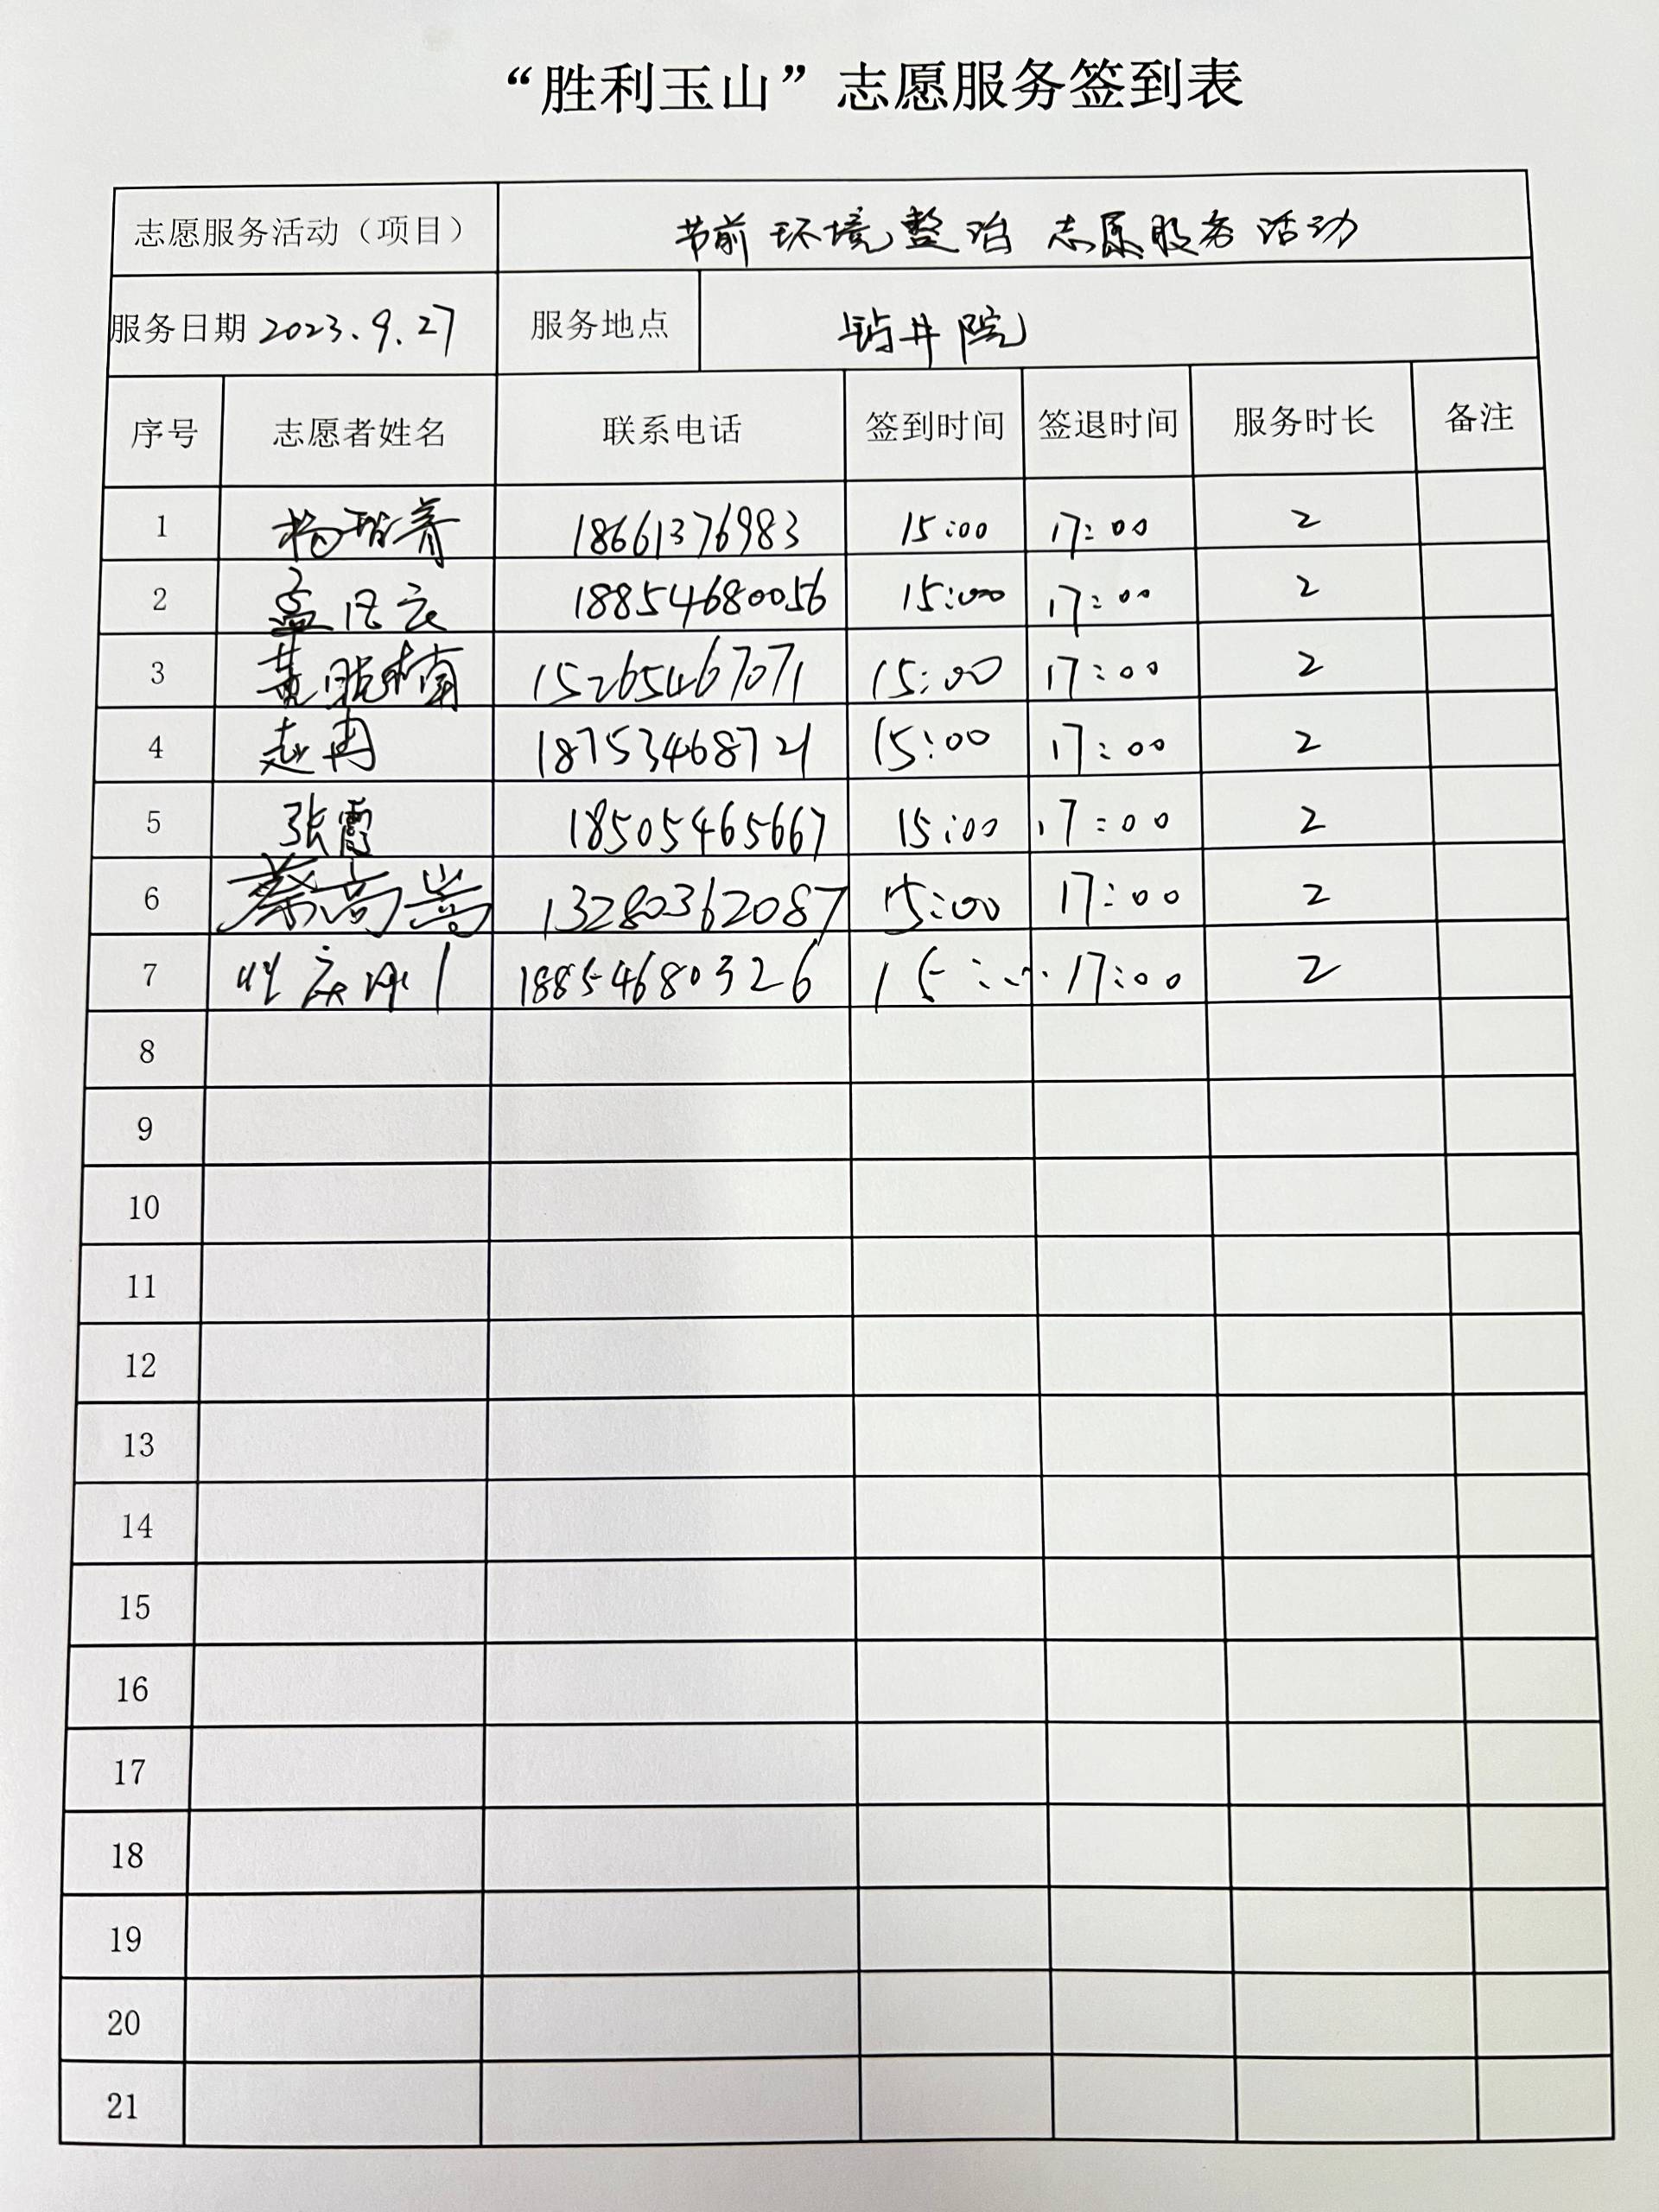 “胜利玉山”志愿服务签到表
志愿服务活动（项目） 节前环境整治志愿服务活动
服务日期 2023.9.27 服务地点 钻井院
序号 志愿者姓名 联系电话 签到时间 签退时间 服务时长 备注
1 杨 18661376983 15:00 17:00 2
2 孟凡云 18854680056 15:00 17:00 2
3 黄 楠 15265467071 15:00 17:00 2
4 赵冉 18753468721 15:00 17:00 2
5 张霞 18505465667 15:00 17:00 2
6 蔡高嵩 13280362087 15:00 17:00 2
7 18854680326 15:00 17:00 2
8
9
10
11
12
13
14
15
16
17
18
19
20
21